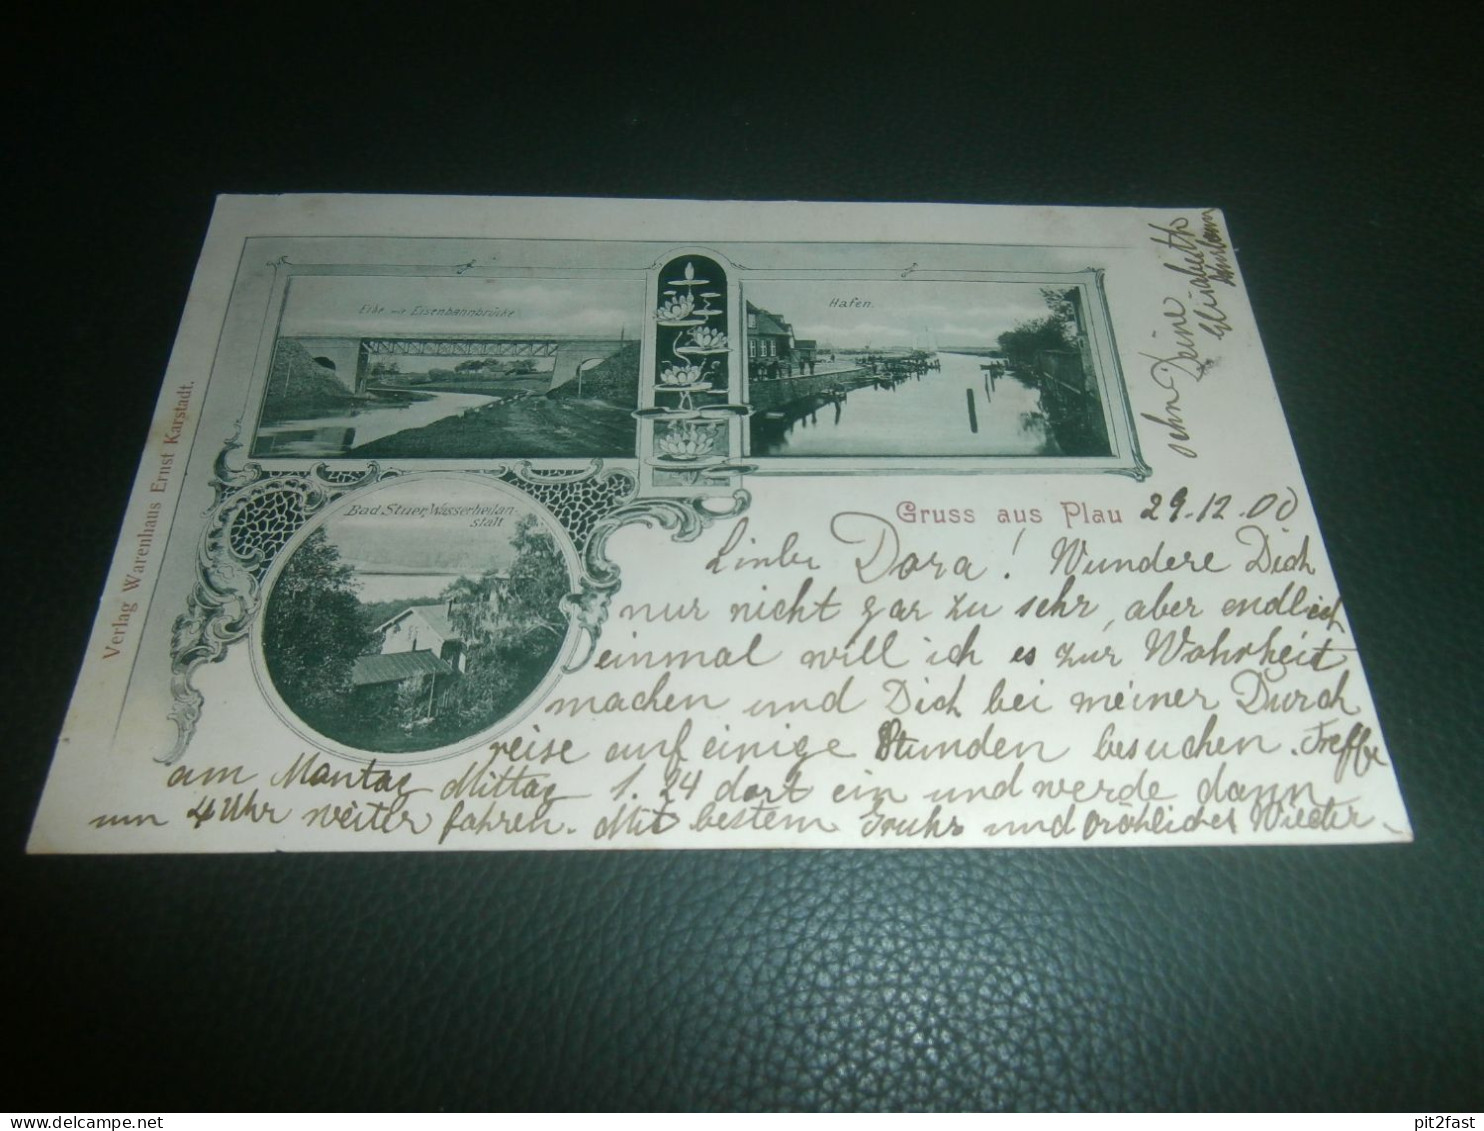 Elbe mit Eisenbahnbrücke.
Hafen.
Bad Stuer, Wasserheilan-
stalt
Verlag Warenhaus Ernst Karstadt.
Gruss aus Plau 29.12.00
Liebe Dora! Wundere Dich
nur nicht gar zu sehr, aber endlich
einmal will ich es zur Wahrheit
machen und Dich bei meiner Durch
reise auf einige Stunden besuchen. Treffe
am Montag Mittag 1.24 dort ein und werde dann
um 4 Uhr weiter fahren. Mit bestem Gruß und fröhliches Wieder-
sehn Deine
pit2fast